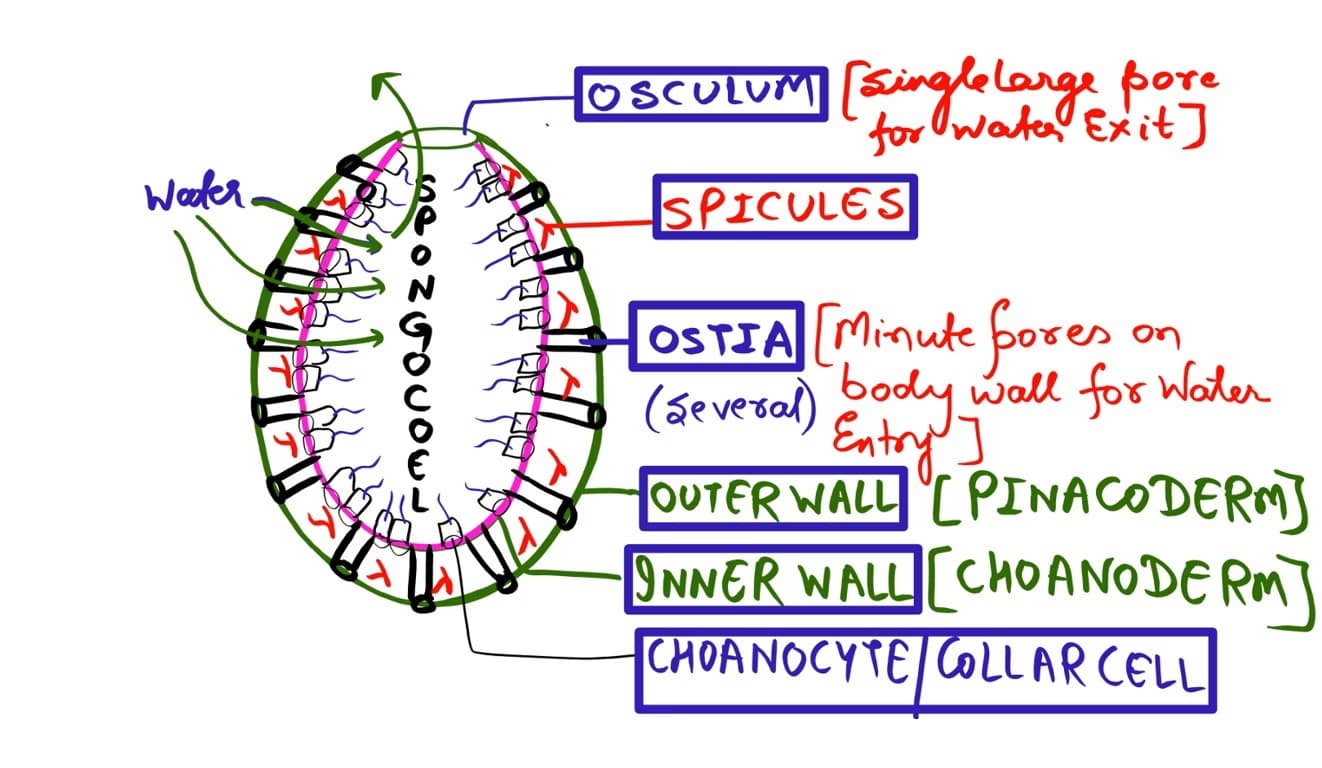 OSCULUM [Single Large pore
for Water Exit]
Water
SPICULES
SPONGOCOEL
OSTIA [Minute pores on
(Several) body wall for Water
Entry]
OUTER WALL [PINACODERM]
INNER WALL [CHOANODERM]
CHOANOCYTE/COLLAR CELL